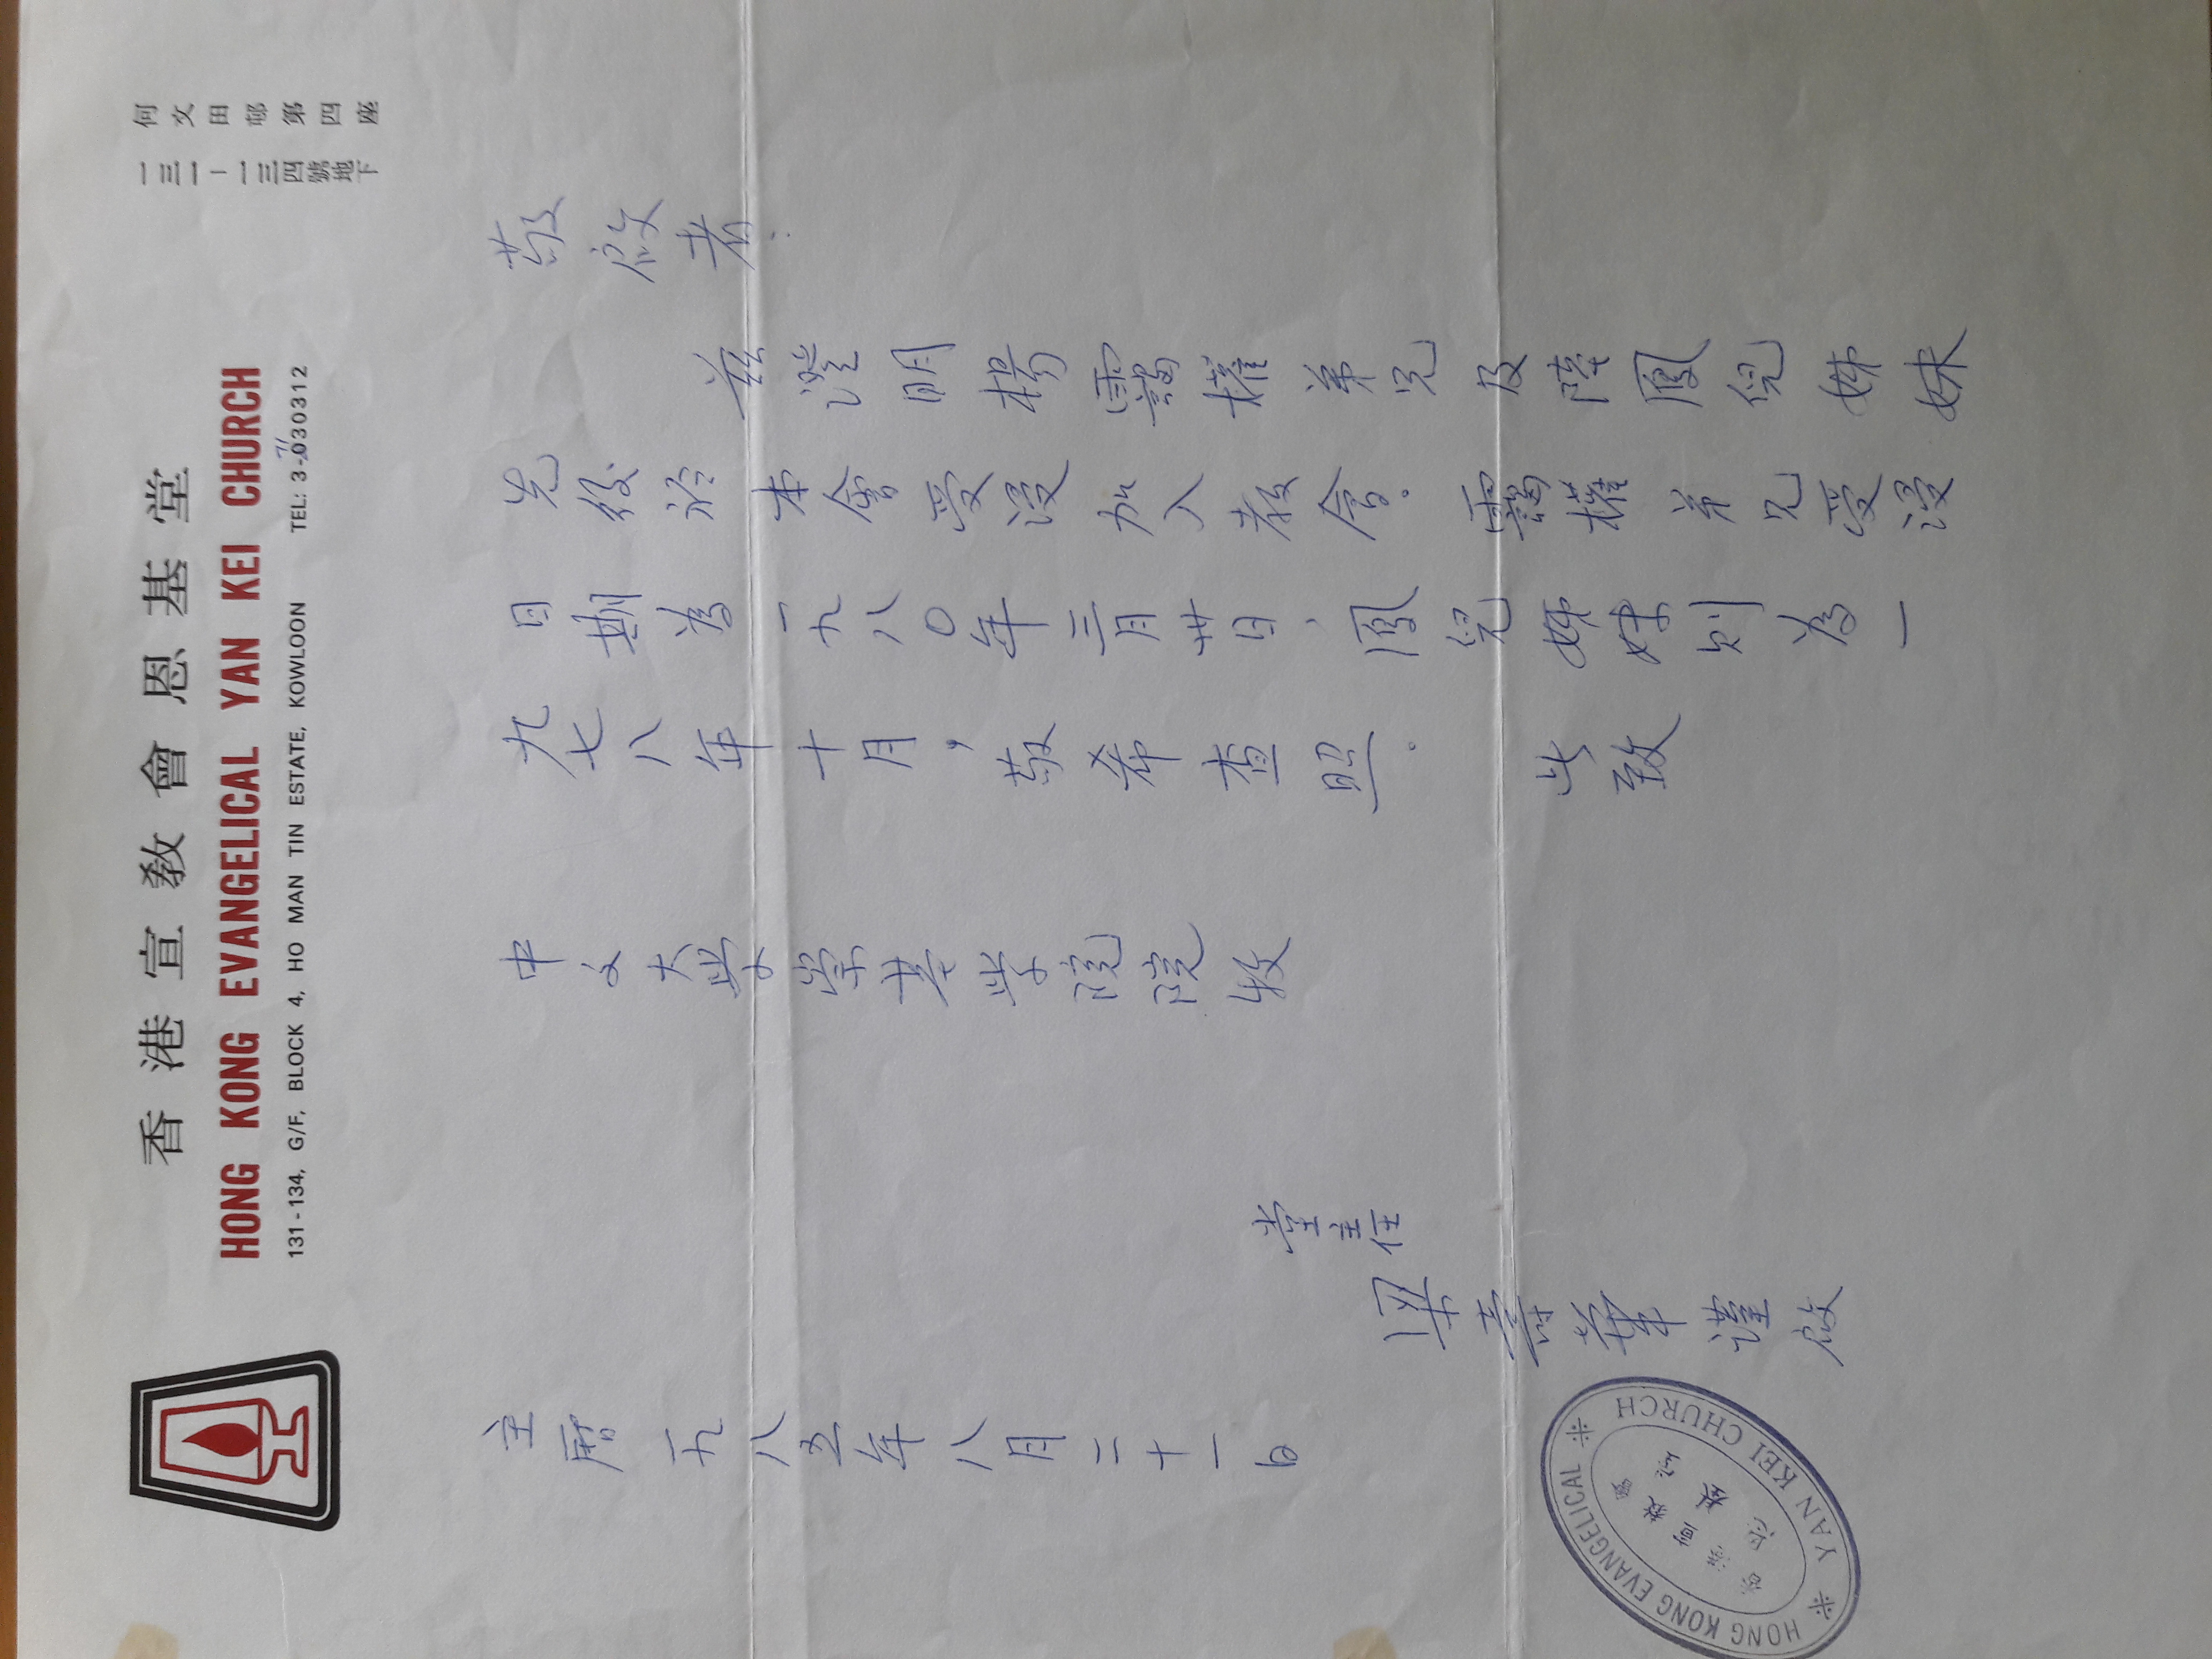 香港宣敎會恩基堂
HONG KONG EVANGELICAL YAN KEI CHURCH
131-134, G/F, BLOCK 4, HO MAN TIN ESTATE, KOWLOON TEL: 3-030312
何文田邨第四座
一三一-一三四號地下
敬啟者:
茲證明楊靄權弟兄及陸鳳兒姊妹
先後於本會受浸加入教會。靄權弟兄受浸
日期為一九八〇年三月卅日，鳳兒姊妹則為一
九七八年十月，敬希查照。此致
中文大學崇基学院院牧
堂主任
梁壽華謹啟
主曆一九八五年八月二十一日
HONG KONG EVANGELICAL
YAN KEI CHURCH
香港宣教會
恩基堂